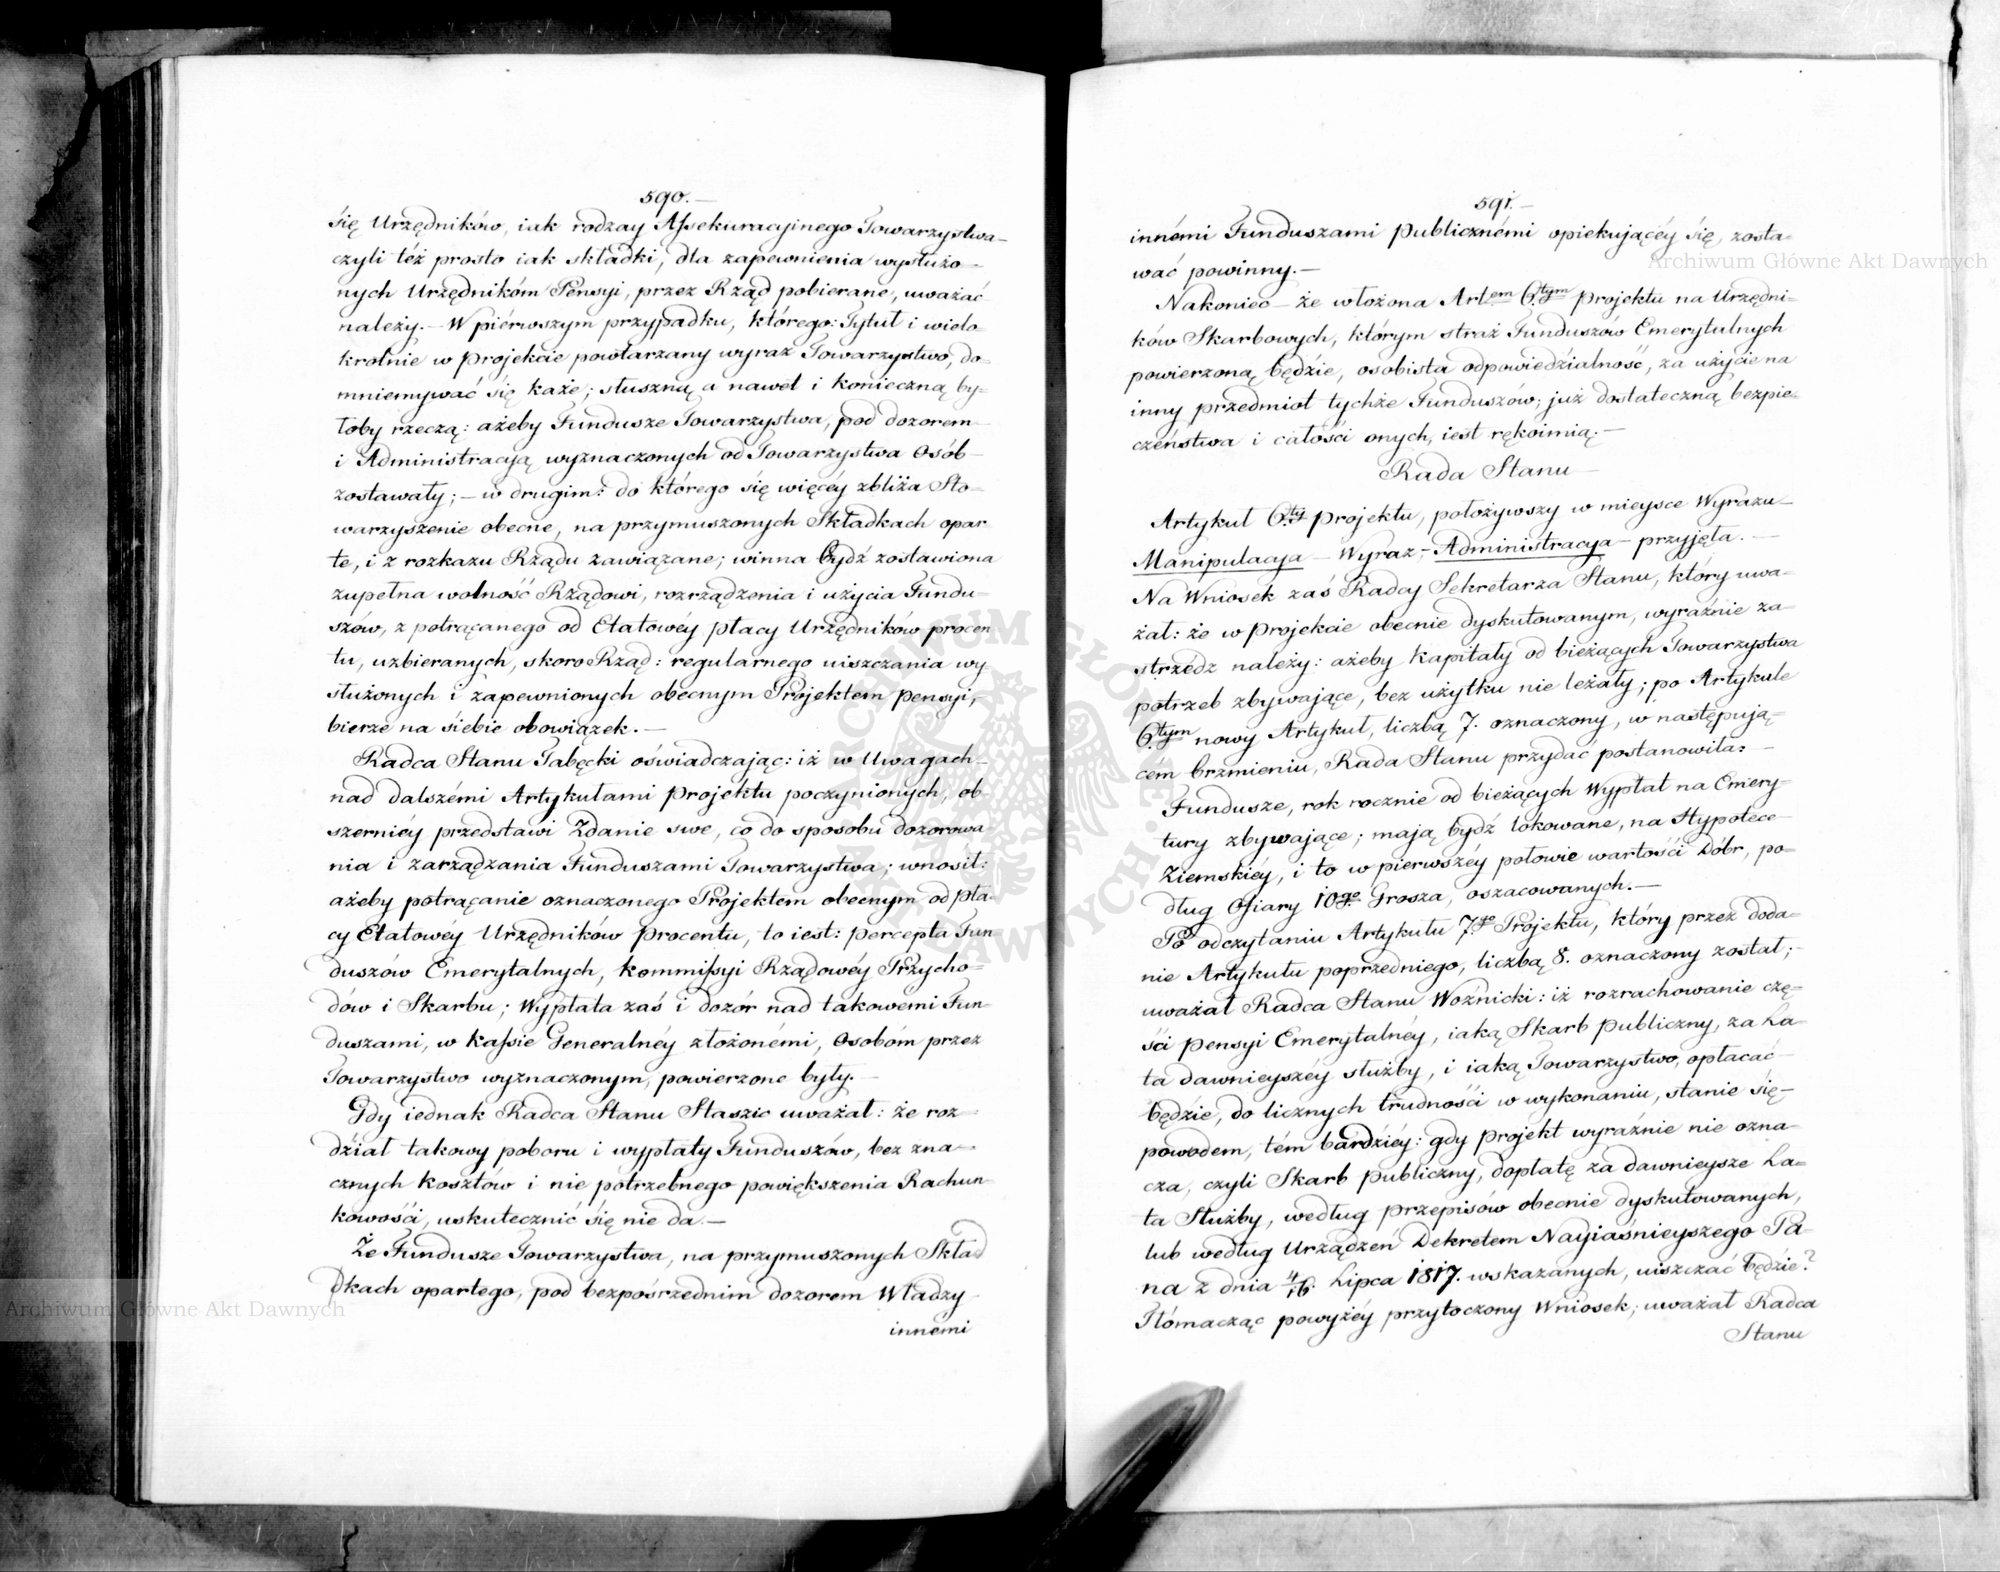 590.—
się Urzędników, iak rodzay Assekuracyinego Towarzystwa—
czyli téż prosto iak składki, dla zapewnienia wysłużo—
nych Urzędnikóm Pensyi, przez Rząd pobierane, uważać
należy.— W piérwszym przypadku, którego: Tytuł i wielo=
krotnie w Projekcie powtarzany wyraz Towarzystwo, do=
mniemywać się każe; słuszną, a nawet i konieczną by=
łoby rzeczą: ażeby Fundusze Towarzystwa, pod dozorem—
i Administracyą wyznaczonych od Towarzystwa Osób—
zostawały;— w drugim: do którego się więcéy zbliża Sto=
warzyszenie obecne, na przymuszonych Składkach opar
te, i z rozkazu Rządu zawiązane; winna bydź zostawiona
zupełna wolność Rządowi, rozrządzenia i użycia Fundu=
szów, z potrącanego od Etatowéy płacy Urzędników procen
tu, uzbieranych, skoro Rząd: regularnego uiszczania wy
służonych i zapewnionych obecnym Projektem pensyi,—
bierze na siebie obowiązek.—
Radca Stanu Gabęcki oświadczając: iż w Uwagach—
nad dalszémi Artykułami Projektu poczynionych, ob
szerniéy przedstawi Zdanie swe, co do sposobu dozorowa
nia i zarządzania Funduszami Towarzystwa; wnosił:
ażeby potrącanie oznaczonego Projektem obecnym od pła=
cy Etatowéy Urzędników Procentu, to iest: percepta Fun
duszów Emerytalnych, Kommissyi Rządowéy Przycho=
dów i Skarbu; Wypłata zaś i dozór nad takowemi Fun=
duszami, w Kassie Generalnéy złożonémi, Osobóm przez
Towarzystwo wyznaczonym, powierzone były.—
Gdy iednak Radca Stanu Staszic uważał: że roz=
dział takowy poboru i wypłaty Funduszów, bez zna—
cznych kosztów i nie potrzebnego powiększenia Rachun=
kowości, uskutecznić się nie da.—
Że Fundusze Towarzystwa, na przymuszonych Skład
dkach opartego, pod bezpośrzednim dozorem Władzy
innemi
591.—
innémi Funduszami publicznémi opiekującéy się, zosta=
wać powinny.—
Nakoniec— że włożona Artem 6.tym Projektu na Urzędni=
ków Skarbowych, którym straż Funduszów Emerytulnych
powierzoną będzie, osobista odpowiedzialność, za użycie na
inny przedmiot tychże Funduszów; już dostateczną bezpie=
czeństwa i całości onych, iest rękoimią.—
Rada Stanu—
Artykuł 6.ty Projektu, położywszy w mieysce Wyrazu—
Manipulacya— Wyraz— Administracya— przyjęła.—
Na Wniosek zaś Radcy Sekretarza Stanu, który uwa=
żał: że w Projekcie obecnie dyskutowanym, wyraźnie za=
strzédz należy: ażeby Kapitały od bieżących Towarzystwa
potrzeb zbywające, bez użytku nie leżały; po Artykule
6.tym nowy Artykuł, liczbą 7. oznaczony, w następują=
cém brzmieniu, Rada Stanu przydać postanowiła:—
Fundusze, rok rocznie od bieżących Wypłat na Emery=
tury zbywające; mają bydź lokowane, na Hypotece—
Ziemskiéy, i to w pierwszéy połowie wartości Dóbr, po=
dług Ofiary 10go Grosza, oszacowanych.—
Po odczytaniu Artykułu 7.go Projektu, który przez doda=
nie Artykułu poprzedniego, liczbą 8. oznaczony został;—
uważał Radca Stanu Woźnicki: iż rozrachowanie czę=
ści pensyi Emerytalnéy, iaką Skarb publiczny, za La=
ta dawnieyszéy służby, i iaką Towarzystwo, opłacać—
będzie, do licznych trudności w wykonaniu, stanie się—
powodem, tém bardziéy: gdy projekt wyraźnie nie ozna=
cza, czyli Skarb publiczny, dopłatę za dawnieysze La=
ta Służby, według przepisów obecnie dyskutowanych,
lub według Urządzeń Dekretem Nayiaśnieyszego Pa=
na z dnia 4/16. Lipca 1817. wskazanych, uiszczać będzie?
Tłómacząc powyżéy przytoczony Wniosek, uważał Radca
Stanu
Archiwum Główne Akt Dawnych
Archiwum Główne Akt Dawnych